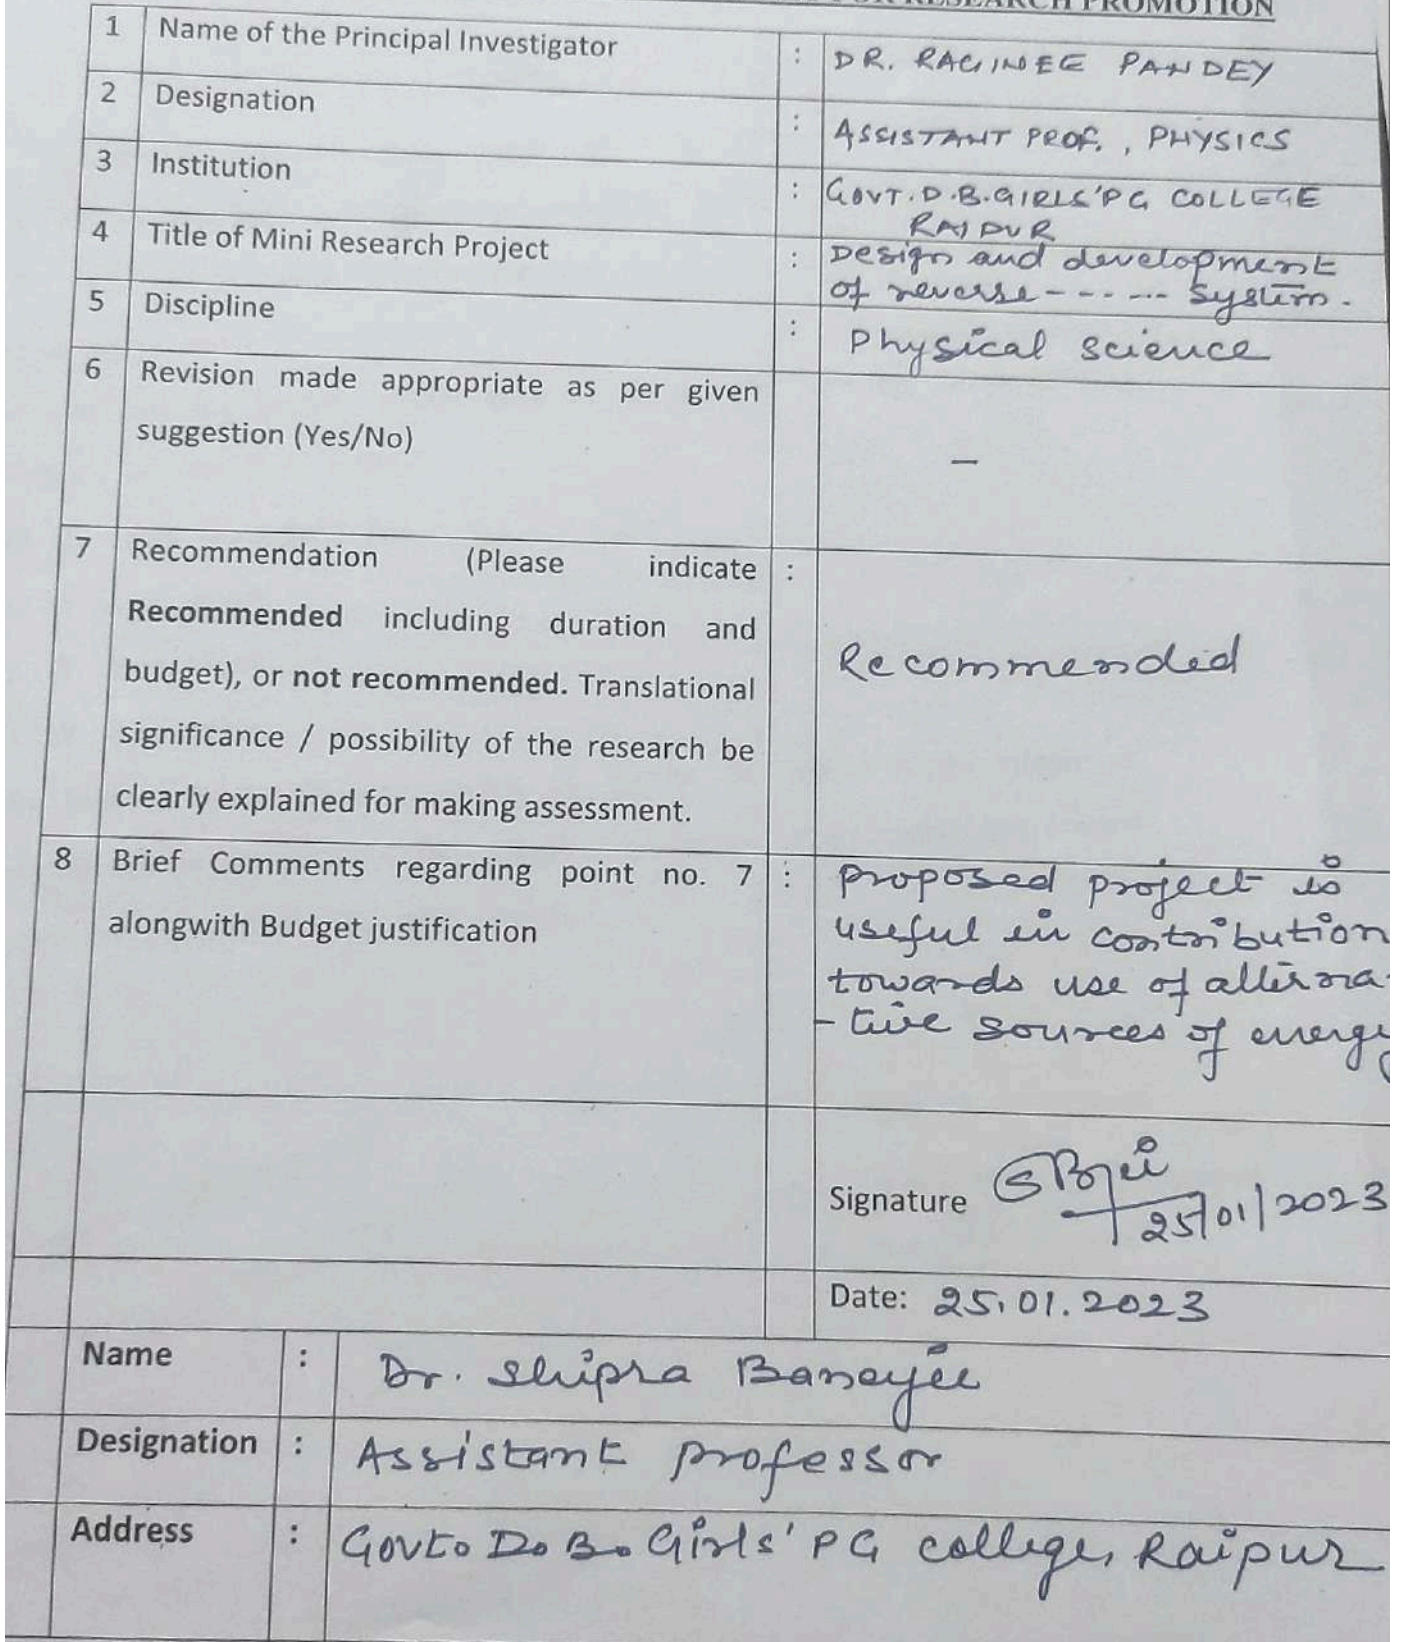 FOR RESEARCH PROMOTION
1 Name of the Principal Investigator : DR. RAGINEE PANDEY
2 Designation : ASSISTANT PROF., PHYSICS
3 Institution : GOVT. D.B. GIRLS' PG COLLEGE
RAIPUR
4 Title of Mini Research Project : Design and development
of reverse - - - - - - System.
5 Discipline : Physical science
6 Revision made appropriate as per given
suggestion (Yes/No) –
7 Recommendation (Please indicate :
Recommended including duration and
budget), or not recommended. Translational Recommended
significance / possibility of the research be
clearly explained for making assessment.
8 Brief Comments regarding point no. 7 : Proposed project is
alongwith Budget justification useful in contribution
towards use of alterna-
-tive sources of energy
Signature 25/01/2023
Date: 25.01.2023
Name : Dr. Shipra Banerjee
Designation : Assistant professor
Address : Govt. D. B. Girls' PG college, Raipur